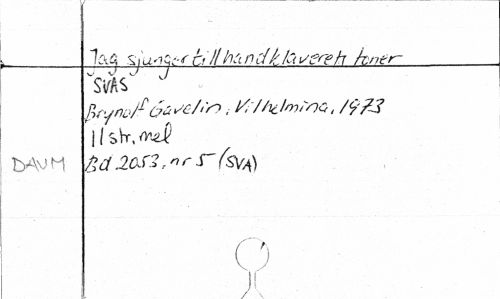 Jag sjunger till handklaverets toner
SVAS
Brynolf Gavelin, Vilhelmina, 1973
11 str, mel
DAUM Bd 2053, nr 5 (SVA)